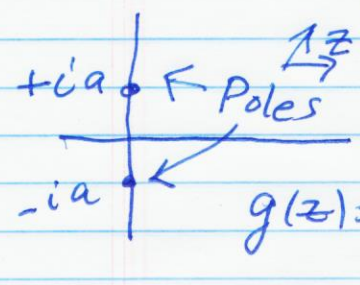 z
+ia
Poles
-ia
g(z)=